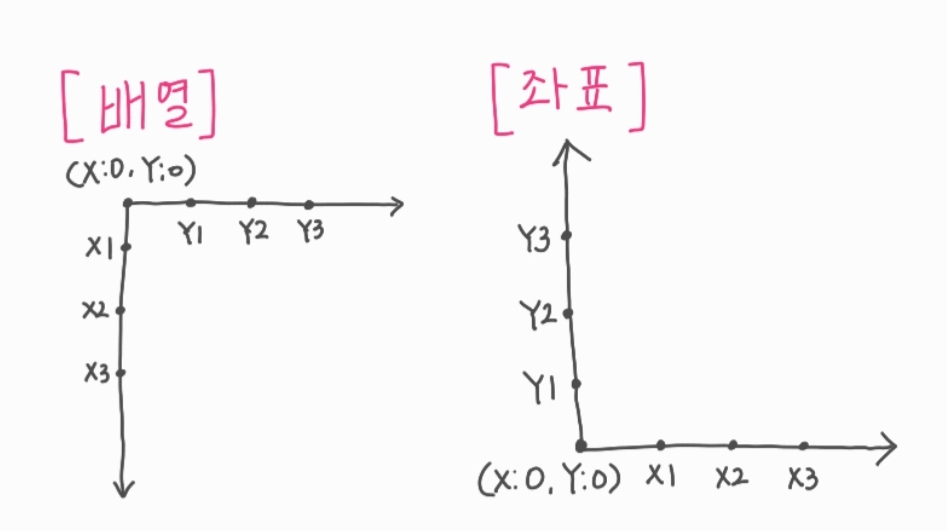 [배열]
(X:0, Y:0)
Y1 Y2 Y3
X1
X2
X3
[좌표]
Y3
Y2
Y1
(X:0, Y:0) X1 X2 X3